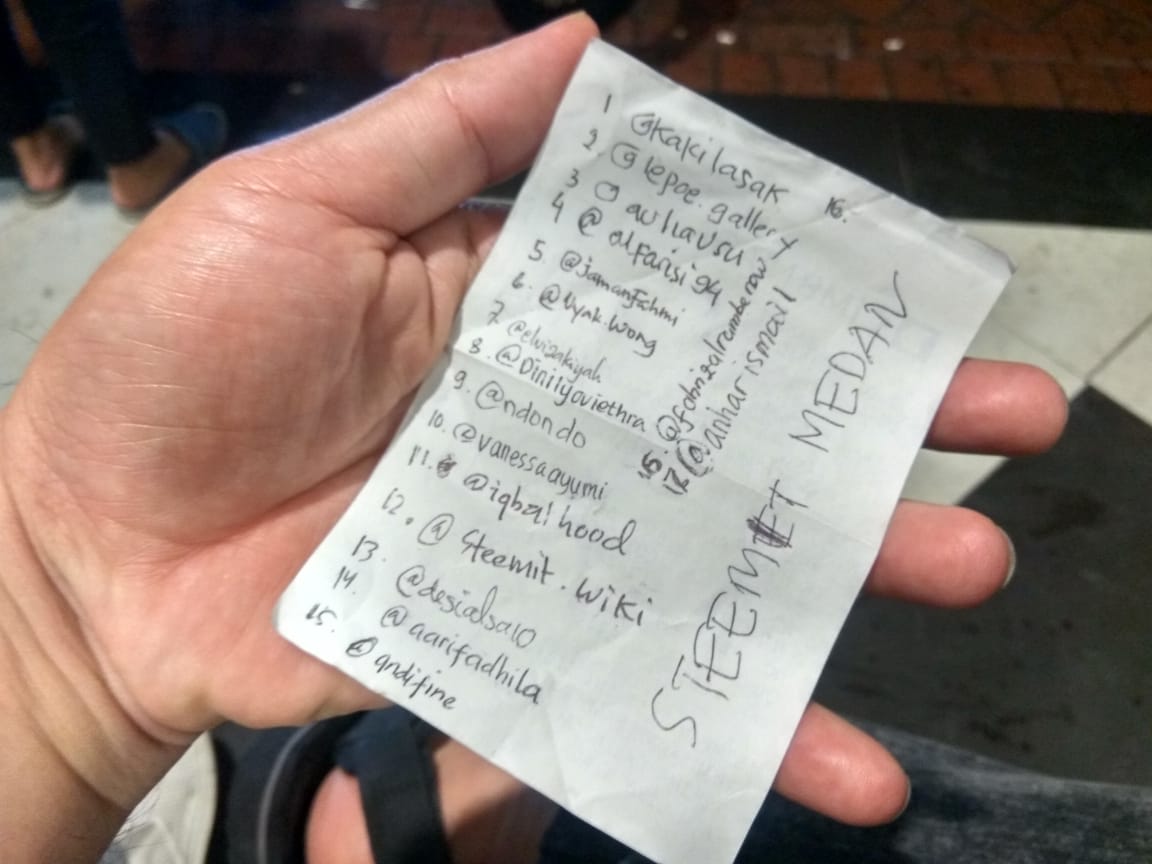 1 @kakilasak
2. @lepoe.gallery
3 @auliausu
4 @alfarisi94
5. @jamanfahmi
6. @Nyak.Wong
7. @elvizakiyah
8. @Diniiyoviethra
9. @ndondo
10. @vanessaayumi
11. @iqbalhood
12. @steemit.wiki
13. @desialsa10
14. @aarifadhila
15. @andifine
16.
17. @anharismail
STEEMIT MEDAN